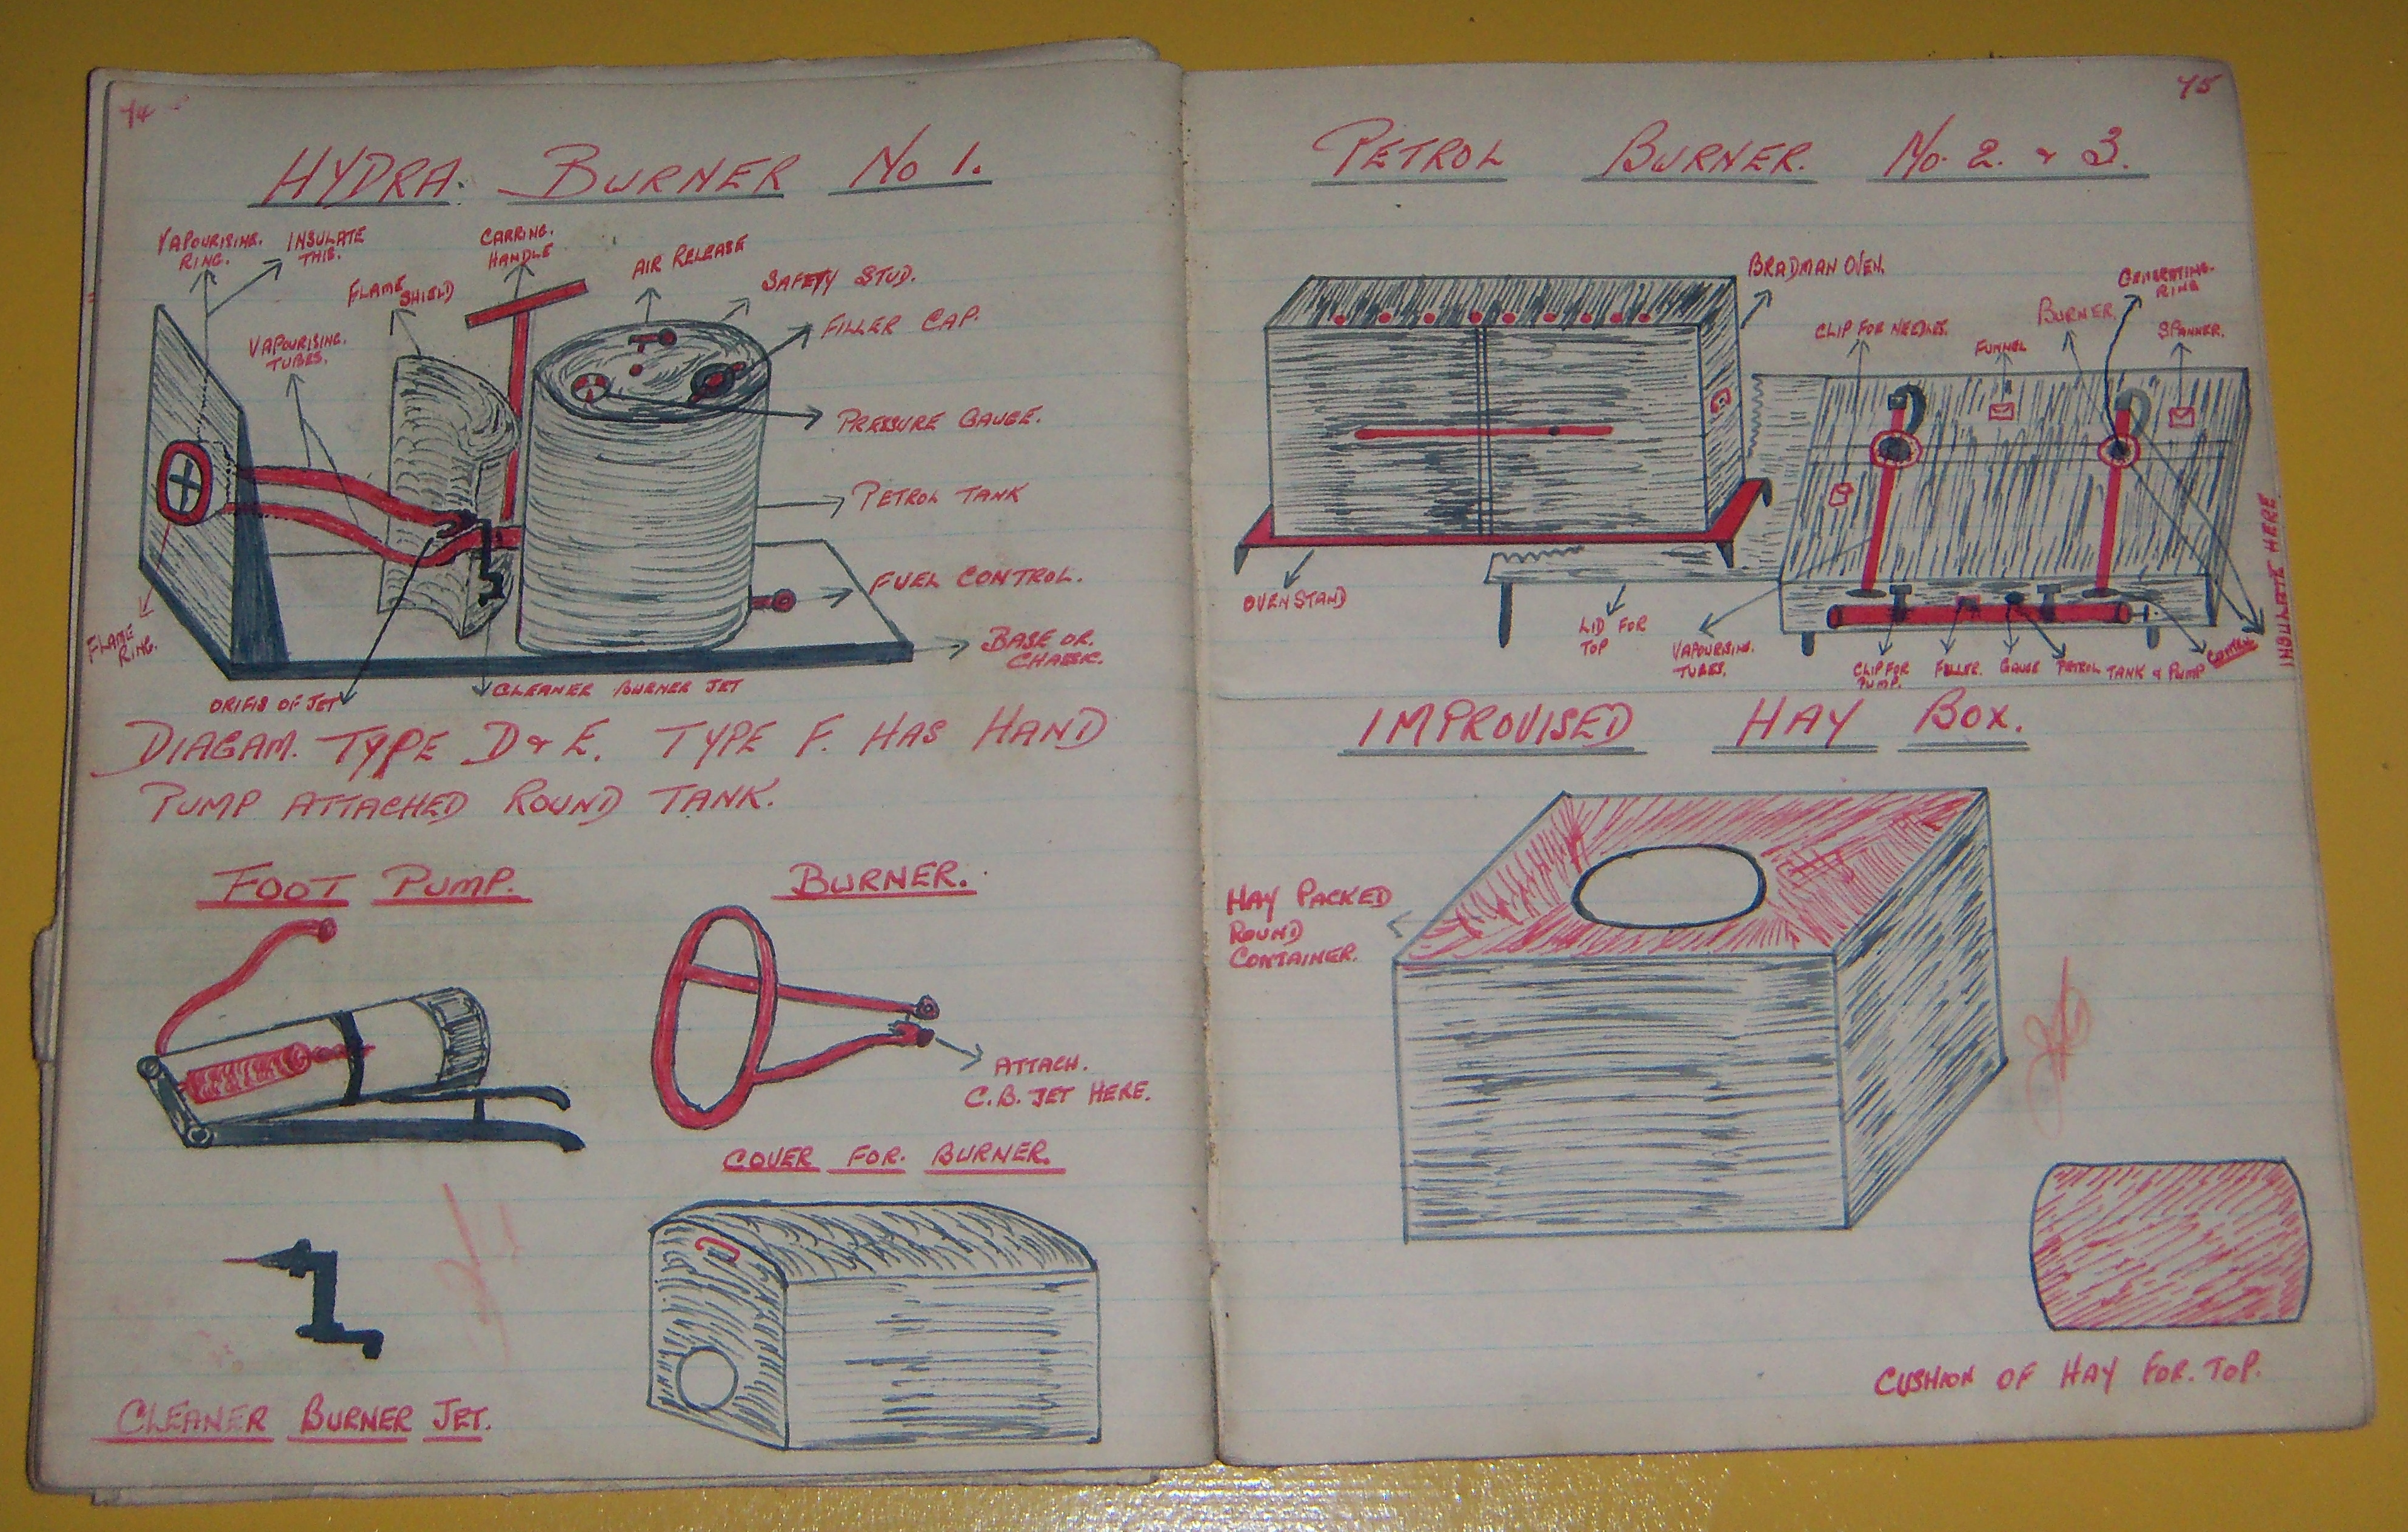 74
HYDRA. BURNER No 1.
VAPOURISING.
RING.
INSULATE
THIS.
CARRING.
HANDLE
AIR RELEASE
SAFETY STUD.
FLAME
SHIELD
FILLER CAP.
VAPOURISING.
TUBES.
PRESSURE GAUGE.
PETROL TANK
FUEL CONTROL.
FLAME
RING.
BASE OR.
CHASSIC.
ORIFIS OF JET
CLEANER BURNER JET
DIAGAM. TYPE D & E. TYPE F. HAS HAND
PUMP ATTACHED ROUND TANK.
FOOT PUMP.
BURNER.
ATTACH.
C.B. JET HERE.
COVER FOR. BURNER.
CLEANER BURNER JET.
75
PETROL BURNER. No. 2. & 3.
BRADMAN OVEN.
GENERATING.
RING
CLIP FOR NEEDLES.
FUNNEL
BURNER.
SPANNER.
INSULATE HERE
OVEN STAND
LID FOR
TOP
VAPOURISING.
TUBES.
CLIP FOR
PUMP.
FILLER.
GAUGE
PETROL TANK & PUMP
CONTROL
IMPROVISED HAY BOX.
HAY PACKED
ROUND
CONTAINER.
CUSHION OF HAY FOR. TOP.